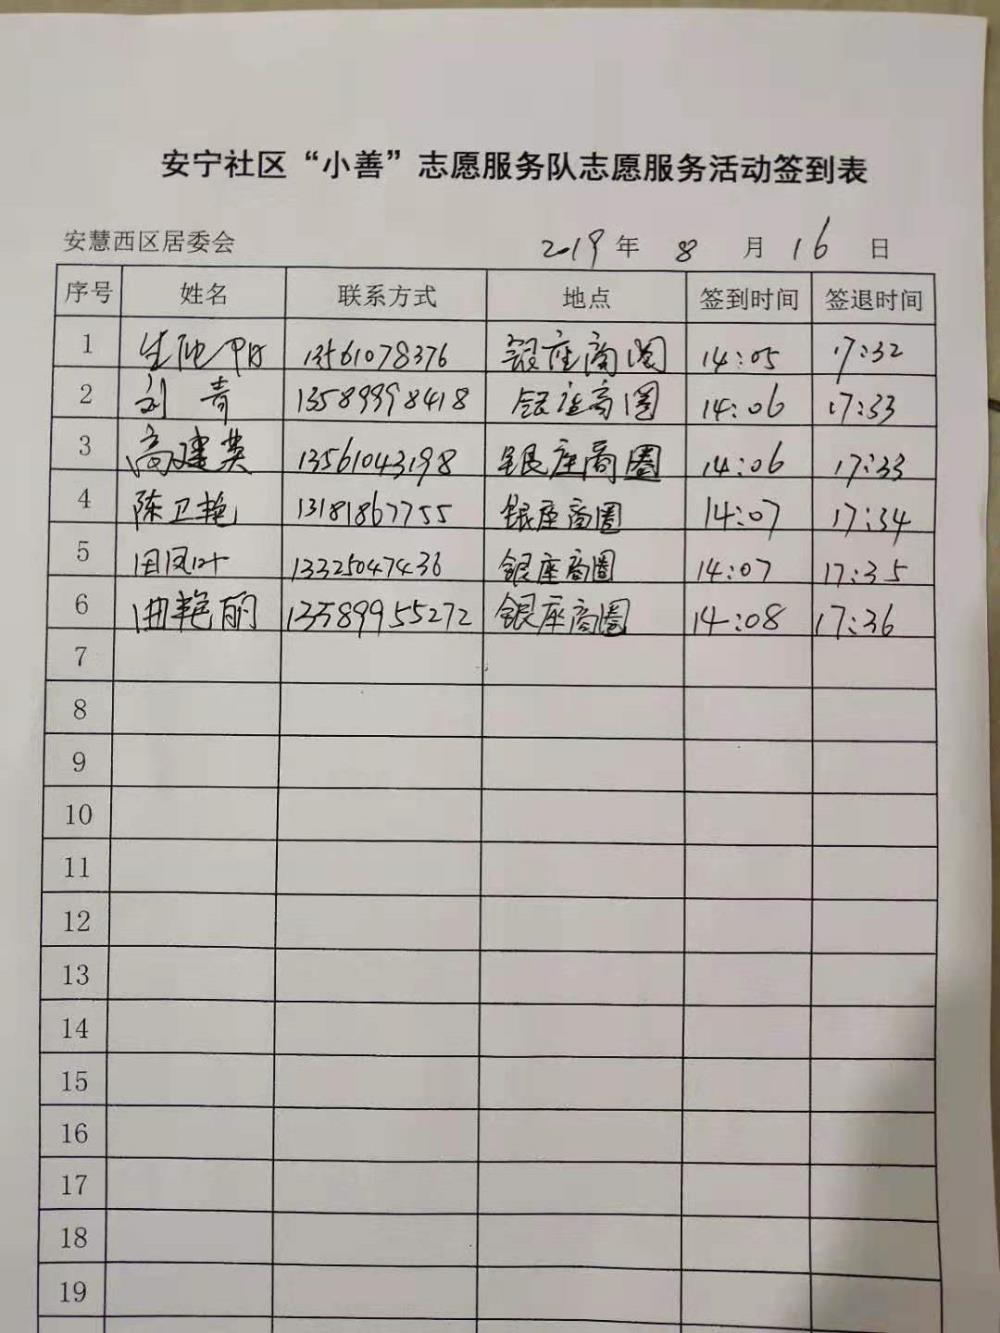 安宁社区“小善”志愿服务队志愿服务活动签到表
安慧西区居委会 2019年 8 月 16 日
序号 姓名 联系方式 地点 签到时间 签退时间
1 13561078376 银座商圈 14:05 17:32
2 刘青 13589998418 银座商圈 14:06 17:33
3 高建英 13561043198 银座商圈 14:06 17:33
4 陈卫艳 13181867755 银座商圈 14:07 17:34
5 田凤叶 13325047436 银座商圈 14:07 17:35
6 曲艳丽 13589955272 银座商圈 14:08 17:36
7
8
9
10
11
12
13
14
15
16
17
18
19